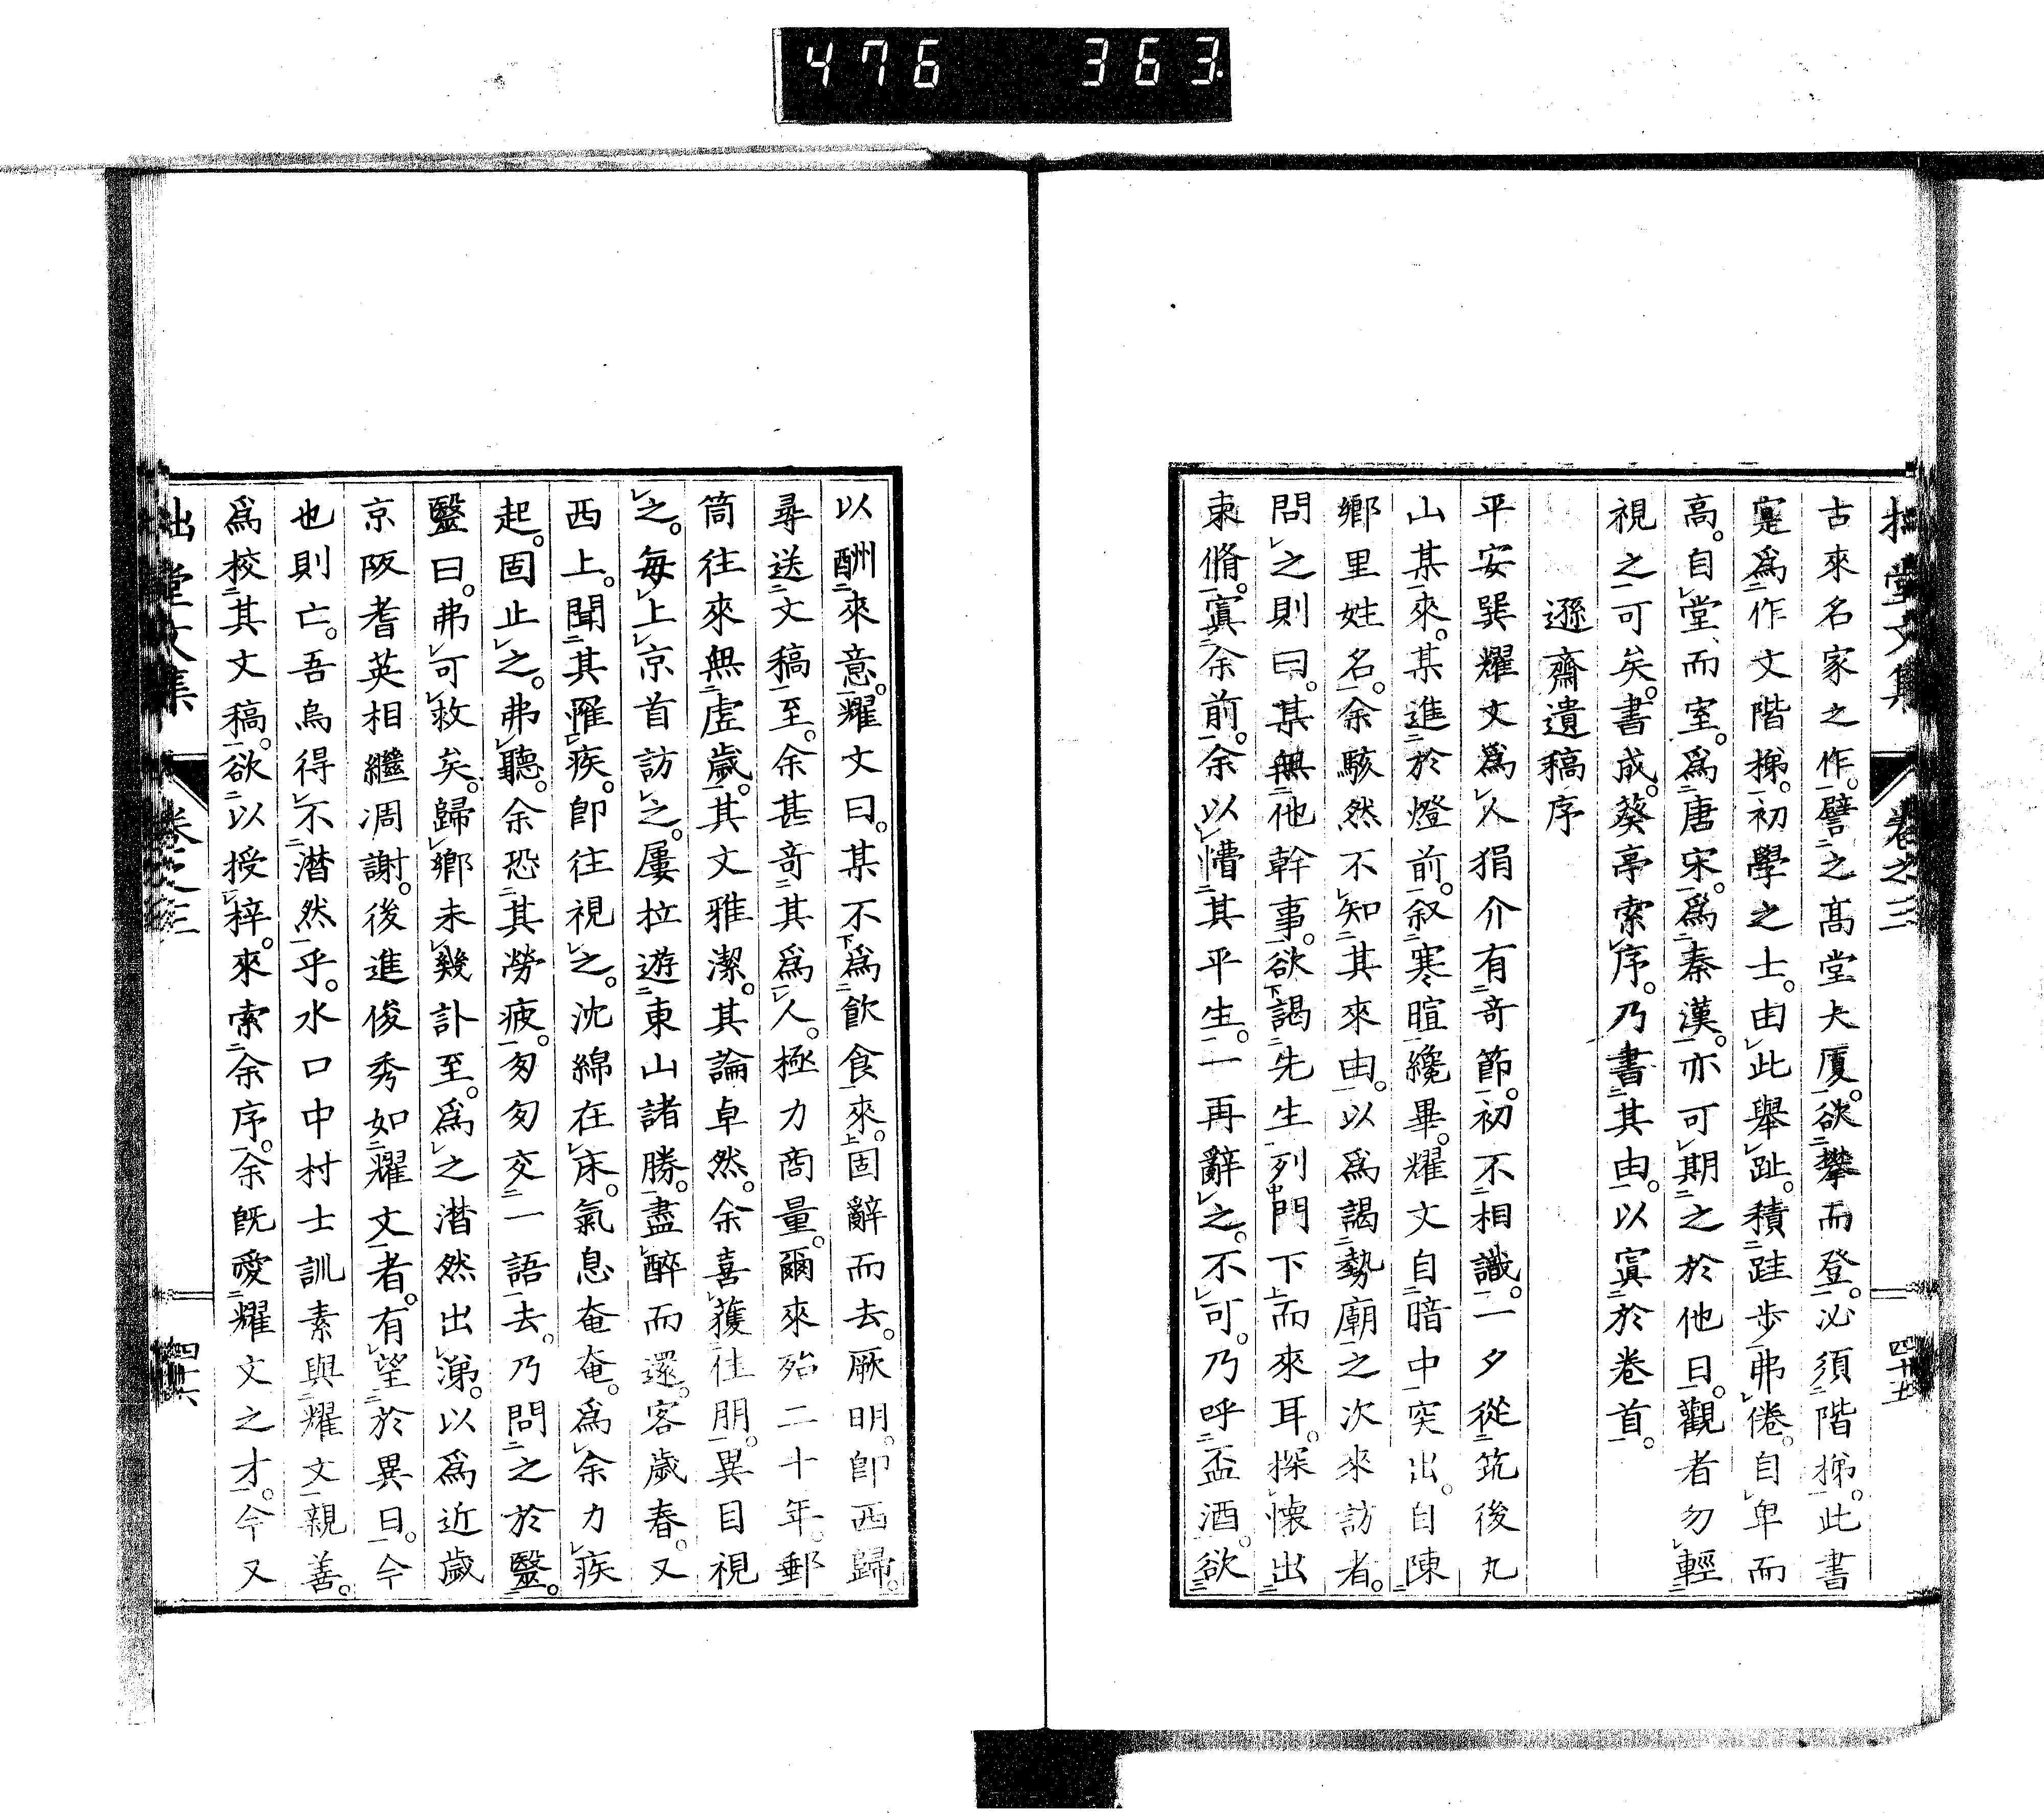 476 363
拙堂文集 卷之三 四十五
古來名家之作。譬之高堂大厦。欲攀而登。必須階梯。此書
寔爲作文階梯。初學之士。由此舉趾。積跬步弗倦。自卑而
高。自堂而室。爲唐宋。爲秦漢。亦可期之於他日。觀者勿輕
視之可矣。書成。葵亭索序。乃書其由。以寘於卷首。
遜齋遺稿序
平安巽耀文爲人狷介有奇節。初不相識。一夕從筑後丸
山某來。某進於燈前。叙寒暄纔畢。耀文自暗中突出。自陳
鄉里姓名。余駭然不知其來由。以爲謁勢廟之次來訪者。
問之則曰。某無他幹事。欲謁先生列門下而來耳。探懷出
束脩。寘余前。余以懵其平生。一再辭之。不可。乃呼盃酒。欲
以酬來意。耀文曰。某不爲飮食來。固辭而去。厥明。卽西歸。
尋送文稿至。余甚奇其爲人。極力商量。爾來殆二十年。郵
筒往來無虛歲。其文雅潔。其論卓然。余喜獲徃朋。異目視
之。每上京首訪之。屢拉遊東山諸勝。盡醉而還。客歲春。又
西上。聞其罹疾。卽往視之。沈綿在床。氣息奄奄。爲余力疾
起。固止之。弗聽。余恐其勞疲。匆匆交一語去。乃問之於醫。
醫曰。弗可救矣。歸鄉未幾訃至。爲之潸然出涕。以爲近歲
京阪耆英相繼凋謝。後進俊秀如耀文者。有望於異日。今
也則亡。吾烏得不潸然乎。水口中村士訓素與耀文親善。
爲校其文稿。欲以授梓。來索余序。余旣愛耀文之才。今又
拙堂文集 卷之三 四十六